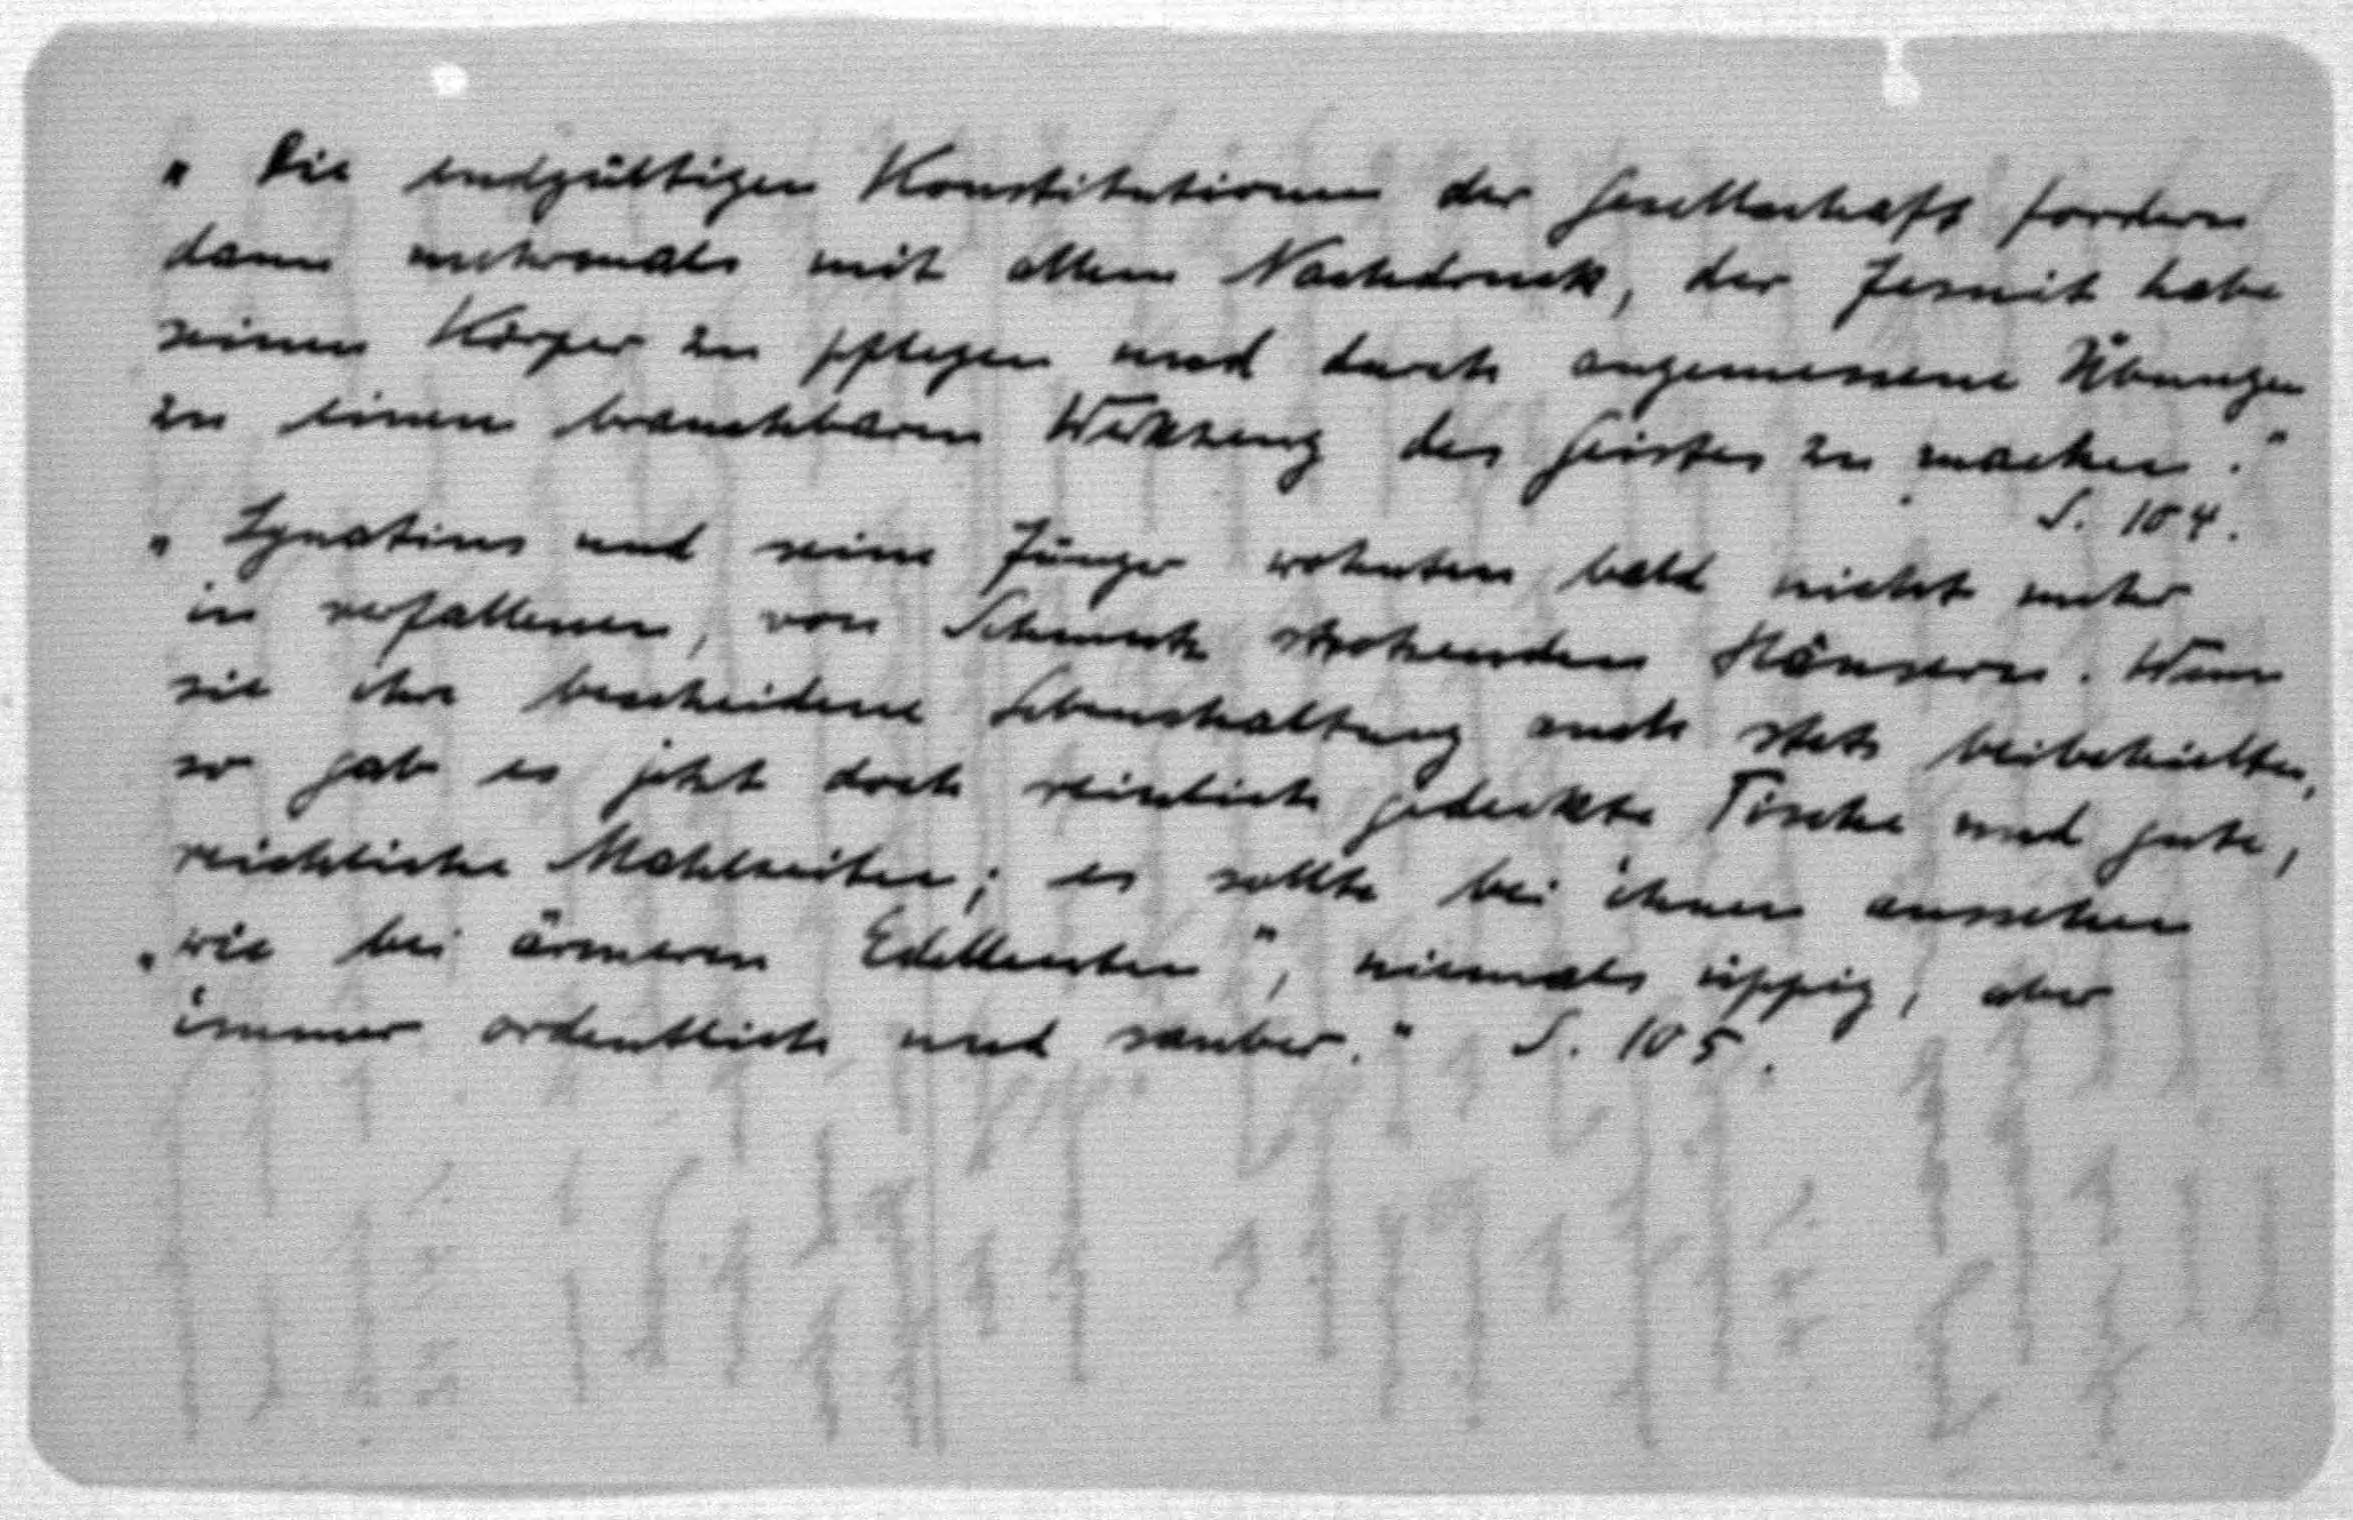 „Die endgültigen Konstitutionen der Gesellschaft fordern
dann mehrmals mit allem Nachdruck, der Jesuit habe
seinen Körper zu pflegen und durch angemessene Übungen
zu einem brauchbaren Werkzeug des Geistes zu machen."
S. 104.
„Ignatius und seine Jünger wohnten bald nicht mehr
in verfallenen, von Schmutz strotzenden Häusern. Wenn
sie ihre bescheidene Lebenshaltung auch stets beibehielten,
so gab es jetzt doch reinlich gedeckte Tische und gute,
reichliche Mahlzeiten; es sollte bei ihnen aussehen
„wie bei ärmeren Edelleuten", niemals üppig, aber
immer ordentlich und sauber." S. 105.